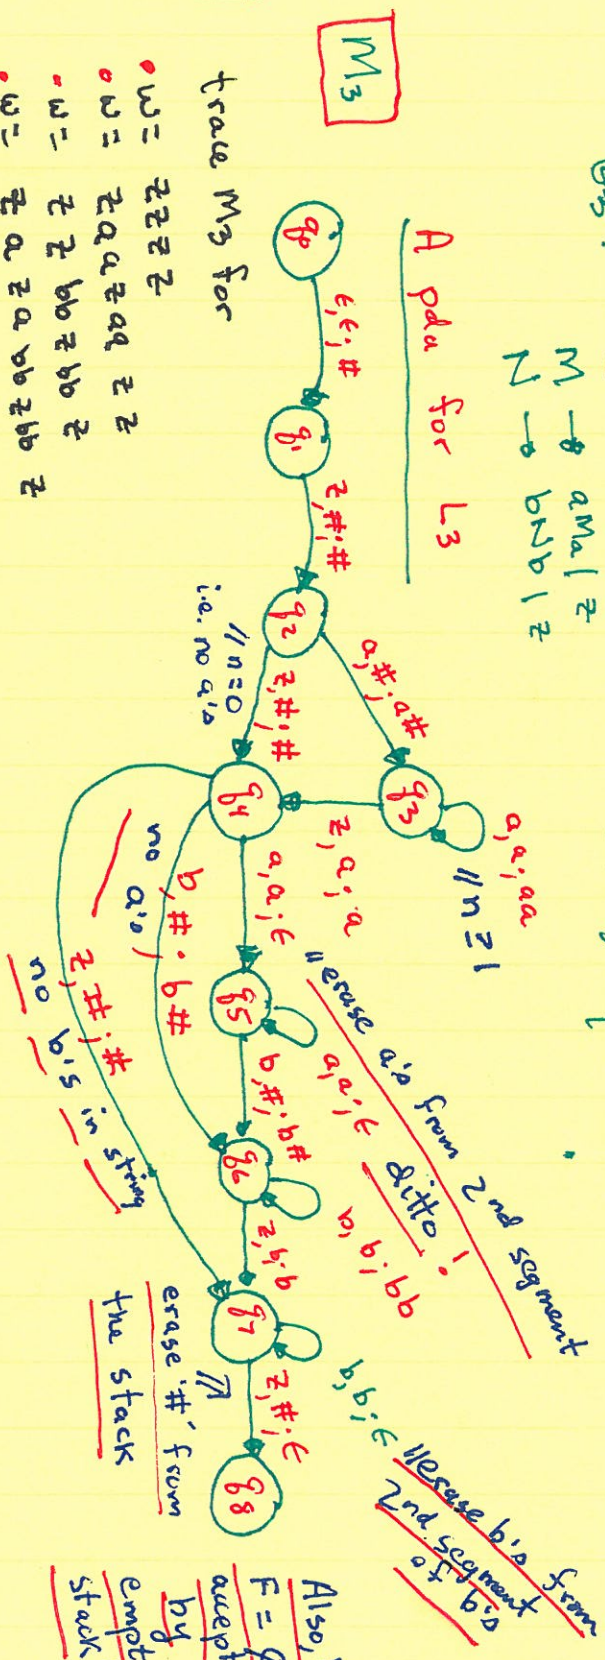 M → aMa | z
N → bNb | z
A pda for L3
M3
q0
ε, ε; #
q1
z, #; #
q2
a, #; a#
q3
a, a; aa
// n ≥ 1
z, #; #
// n = 0
i.e. no a's
z, a; a
q4
a, a; ε
q5
a, a; ε
"erase a's from 2nd segment
ditto!
b, #; b#
no a's,
b, #; b#
q6
b, b; bb
z, #; #
no b's in string
z, b; b
q7
b, b; ε
"erase b's from
2nd segment
of b's
z, #; ε
q8
erase '#' from
the stack
Also,
F =
accept
by
empt
stack
trace M3 for
• w = zzzz
• w = zaazaazz
• w = zzbbzbbz
• w = zazabbzbbz